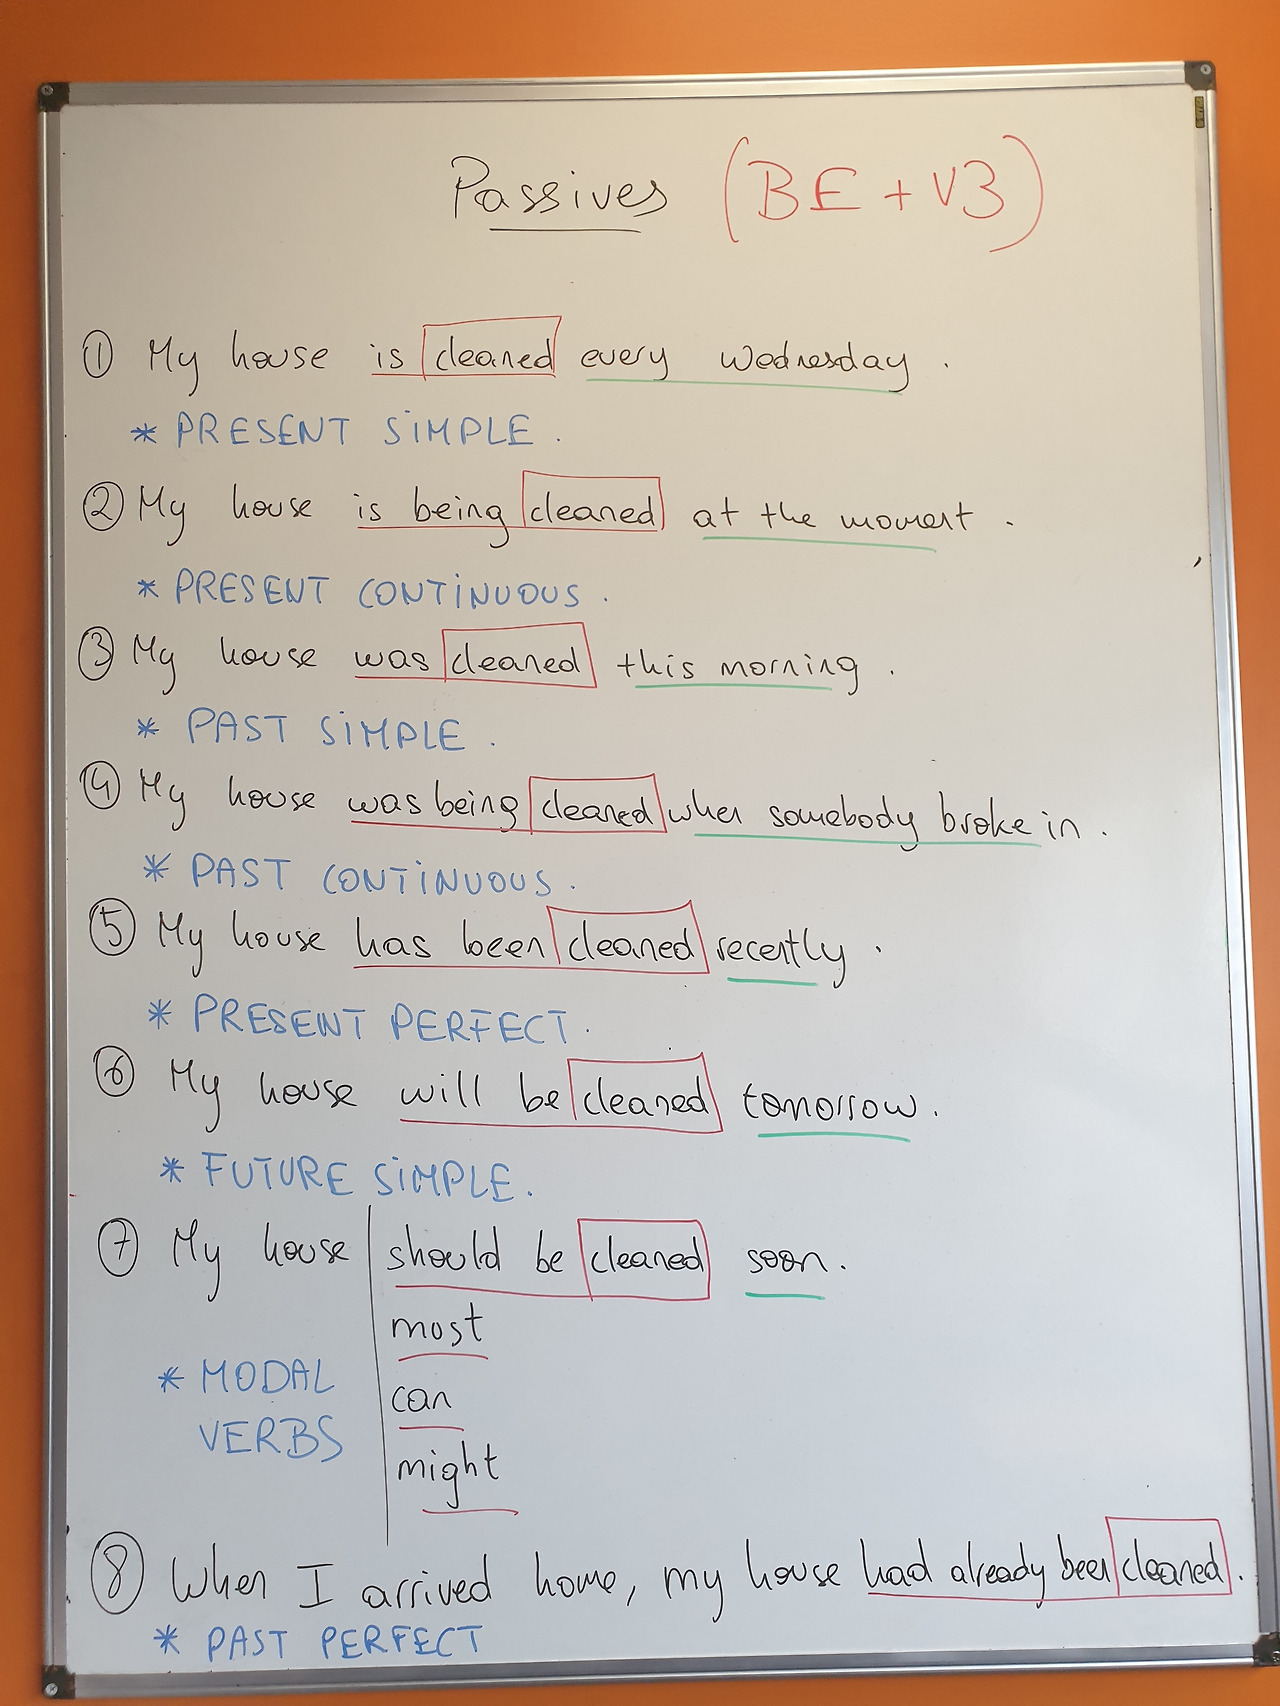 Passives (BE + V3)
① My house is cleaned every Wednesday.
* PRESENT SIMPLE.
② My house is being cleaned at the moment.
* PRESENT CONTINUOUS.
③ My house was cleaned this morning.
* PAST SIMPLE.
④ My house was being cleaned when somebody broke in.
* PAST CONTINUOUS.
⑤ My house has been cleaned recently.
* PRESENT PERFECT.
⑥ My house will be cleaned tomorrow.
* FUTURE SIMPLE.
⑦ My house should be cleaned soon.
most
* MODAL
can
VERBS
might
⑧ When I arrived home, my house had already been cleaned.
* PAST PERFECT